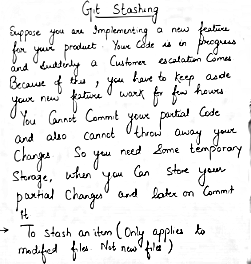 Git Stashing
Suppose you are Implementing a new feature
for your product. Your Code is in progress
and suddenly a Customer escalation Comes
Because of this, you have to keep, aside
your new feature work for few hours
You Cannot Commit your partial Code
and also cannot throw away your
Changes. So you need Some temporary
Storage, when you Can store your
partial Changes and later on Commit
It
→ To stash an item (Only applies to
modified files Not new files)